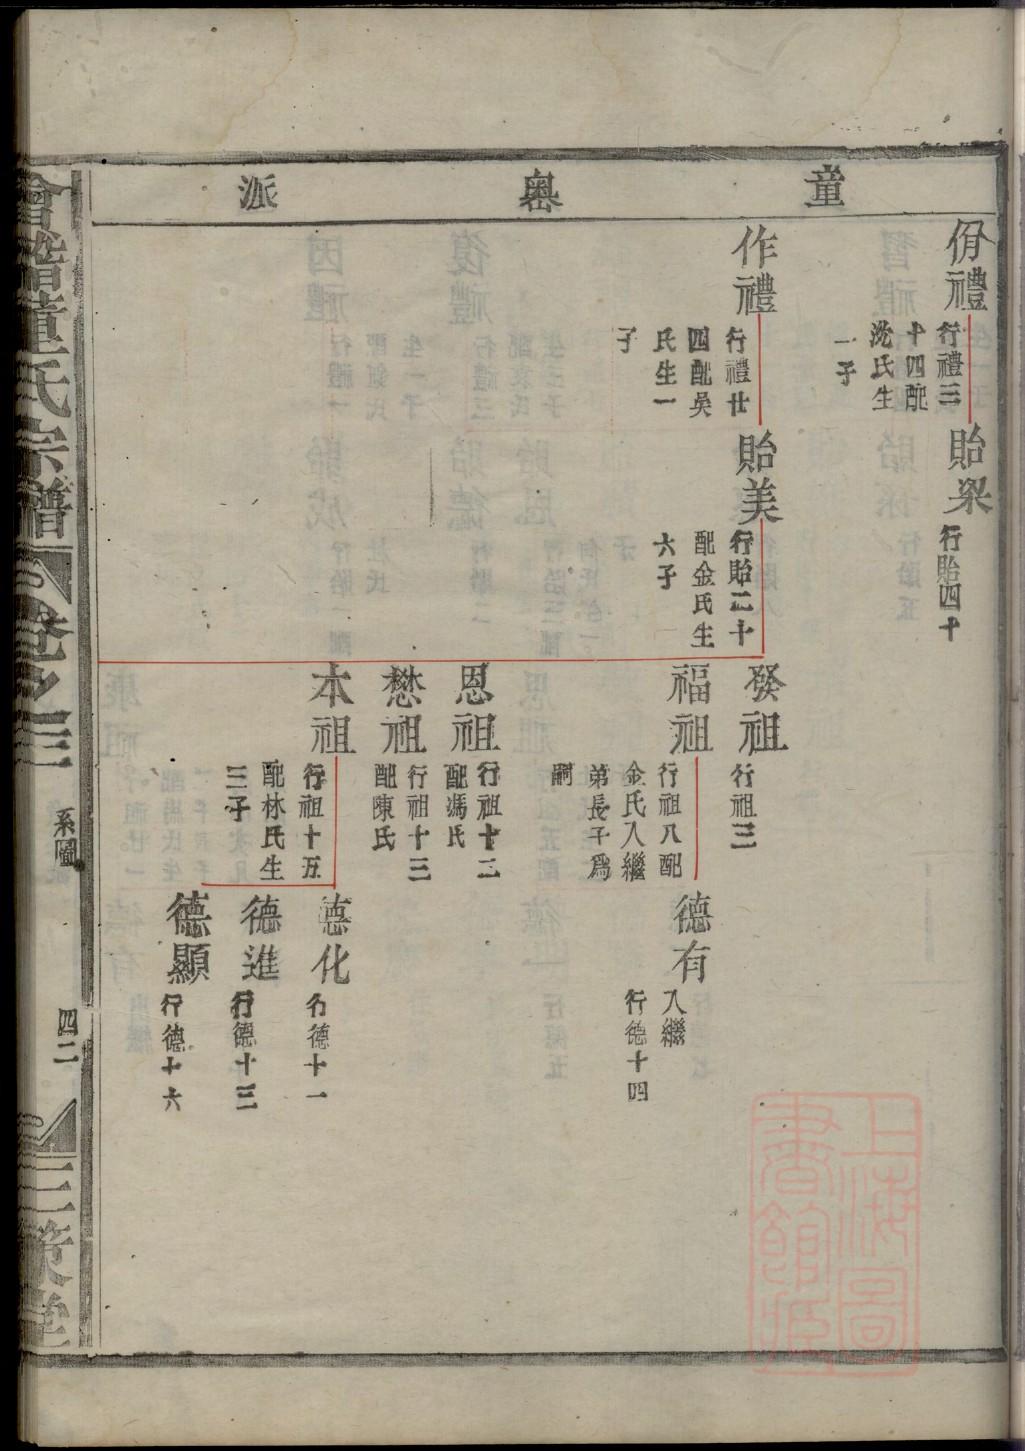 童
粵
派
佾禮
行禮三
十四配
沈氏生
一子
貽梁
行貽四十
作禮
行禮廿
四配吳
氏生一
子
貽美
行貽二十
配金氏生
六子
癸祖
行祖三
福祖
行祖八配
金氏入繼
弟長子爲
嗣
德有
入繼
行德十四
恩祖
行祖十二
配馮氏
懋祖
行祖十三
配陳氏
本祖
行祖十五
配林氏生
三子
德化
行德十一
德進
行德十三
德顯
行德十六
會稽董氏宗譜
卷之三
系圖
四二
三策堂
上海圖
書館藏